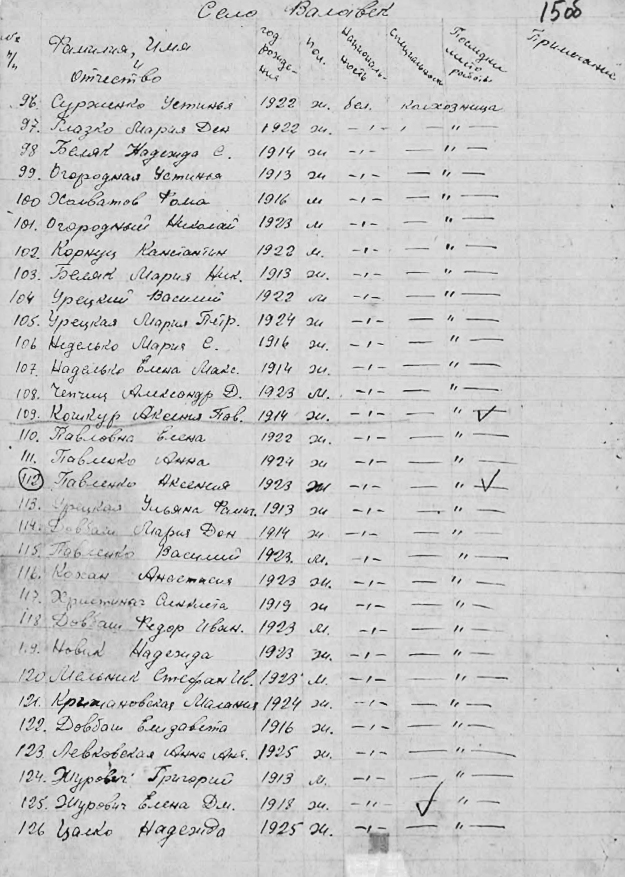 Село Валавск 150б
№ п/п Фамилия, Имя и отчество год рождения пол. Националь-ность Специальность Последнее место работы Примечание
96. Сурженко Устинья 1922 ж. бел. колхозница
97. Глазко Мария Дем 1922 ж. -〃- — 〃 —
98 Беляк Надежда С. 1914 ж -〃- — 〃 —
99. Огородная Устинья 1913 ж -〃- — 〃 —
100 Холватов Фома 1916 м -〃- — 〃 —
101. Огородный Николай 1923 м -〃- — 〃 —
102. Корнуц Канстантин 1922 м. -〃- — 〃 —
103. Беляк Мария Ник. 1913 ж. -〃- — 〃 —
104 Урецкий Василий 1922 м -〃- — 〃 —
105. Урецкая Мария Петр. 1924 ж -〃- — 〃 —
106 Неделько Мария С. 1916 ж. -〃- — 〃 —
107. Наделько Елена Макс. 1914 ж. -〃- — 〃 —
108. Чепчиц Александр Д. 1923 м. -〃- — 〃 —
109. Кошкур Аксения Пав. 1914 ж. -〃- — 〃 ✓
110. Павловна Елена 1922 ж. -〃- — 〃 —
111. Павлюко Анна 1924 ж -〃- — 〃 —
112 Павленко Аксения 1923 ж -〃- — 〃 ✓
113. Урецкая Ульяна 1913 ж. -〃- — 〃 —
114. Довбаш Мария Дон 1914 ж -〃- — 〃 —
115. Павленко Василий 1923. м. -〃- — 〃 —
116. Кохан Анастасия 1923 ж. -〃- — 〃 —
117. 1919 ж -〃- — 〃 —
118. Довбаш Федор Иван. 1923 м. -〃- — 〃 —
119. Новик Надежда 1923 ж. -〃- — 〃 —
120 Мельник Стефан Ив. 1923 м. -〃- — 〃 —
121. Крыжановская Малания 1924 ж. -〃- — 〃 —
122. Довбаш Елизавета 1916 ж. -〃- — 〃 —
123. Левковская Анна Ант. 1925 ж. -〃- — 〃 —
124. Журович Григорий 1913 м. -〃- — 〃 —
125. Журович Елена Дм. 1918 ж. -〃- ✓ — 〃 —
126 Цалко Надежда 1925 ж. -〃- — 〃 —